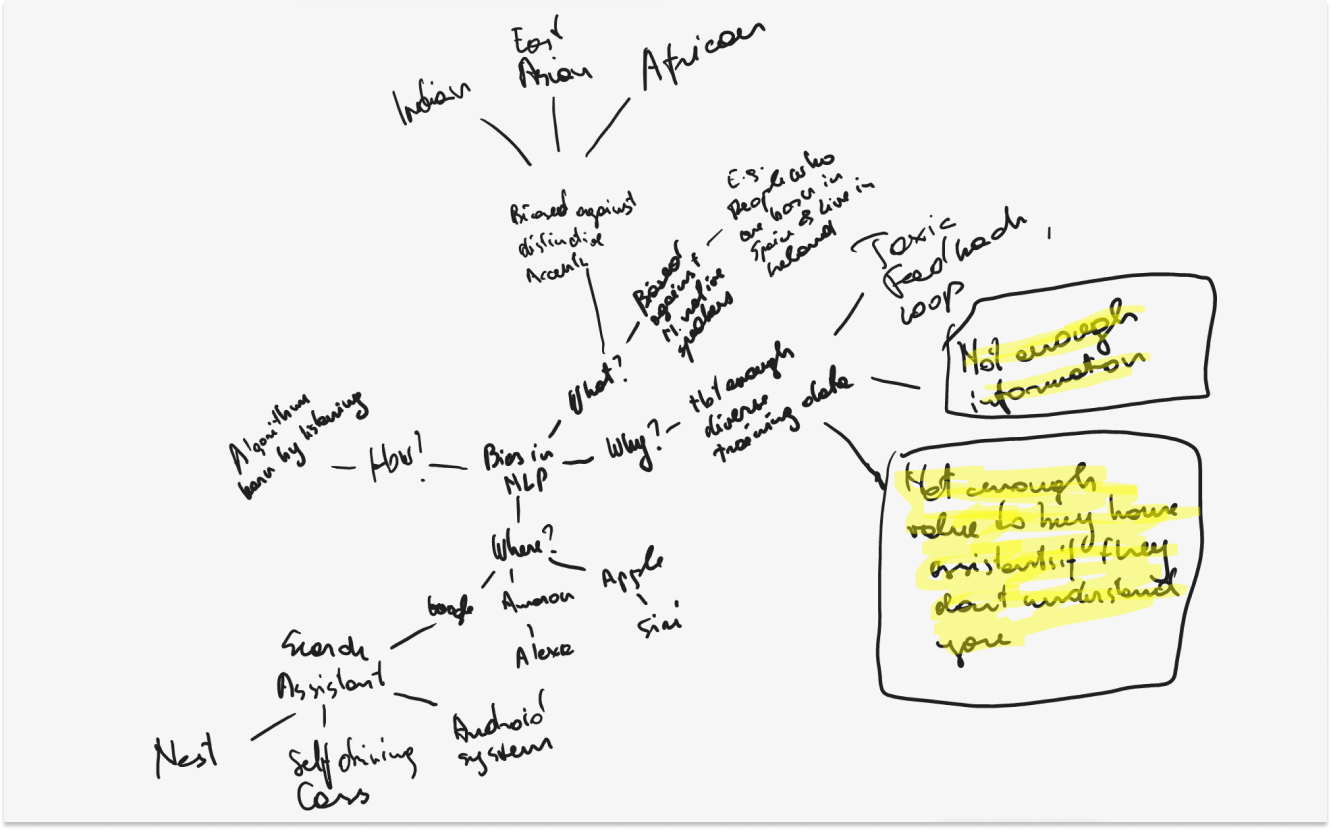 Indian
East
Asian
African
Biased against
distinctive
Accents
Biased
against
N. native
speakers
E.g.
People who
are born in
Spain & live in
Ireland
What?
Toxic
Feedback
Loop
Not enough
information
Not enough
diverse
training data
Why?
Bias in
NLP
How?
Algorithm
learn by listening
Not enough
value to buy house
assistants if they
don't understand
you
Where?
Google
Amazon
Alexa
Apple
Siri
Search
Assistant
Nest
Self driving
Cars
Android
system